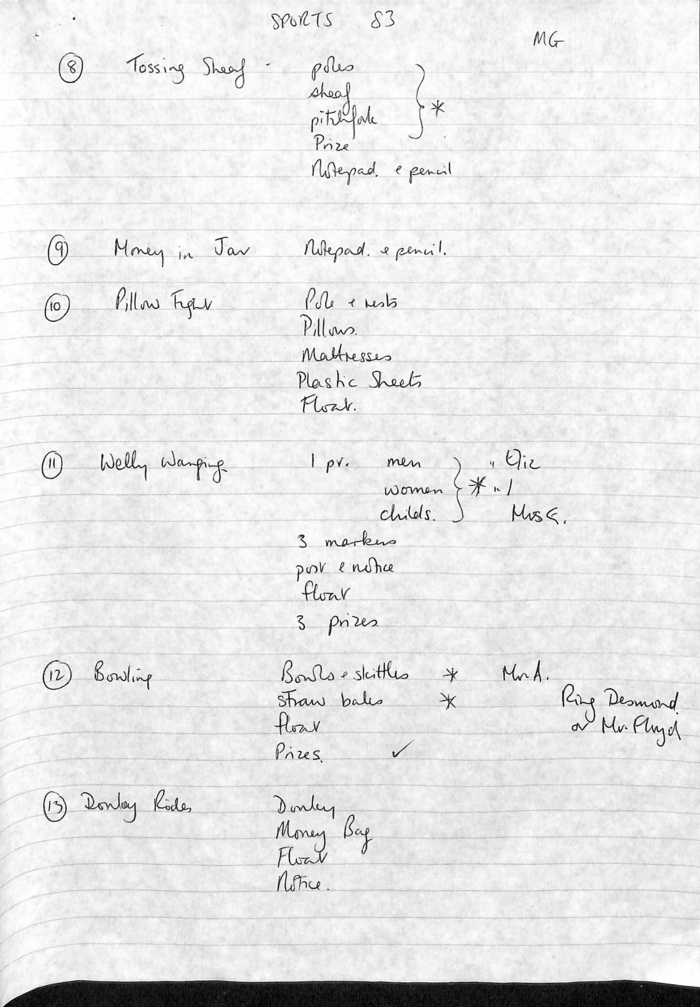 SPORTS 83
MG
⑧ Tossing Sheaf - poles
sheaf
pitchfork *
Prize
Notepad. & pencil
⑨ Money in Jar Notepad. & pencil.
⑩ Pillow Fight Pole & rests
Pillows.
Mattresses
Plastic Sheets
Float.
⑪ Welly Wanging. 1 pr. men
women *
childs. Mrs G.
3 markers
post & notice
float
3 prizes.
⑫ Bowling Bowls & skittles * Mr A.
straw bales * Ring Desmond.
float or Mr. Floyd
Prizes. ✓
⑬ Donkey Rides Donkey
Money Bag
Float
Notice.